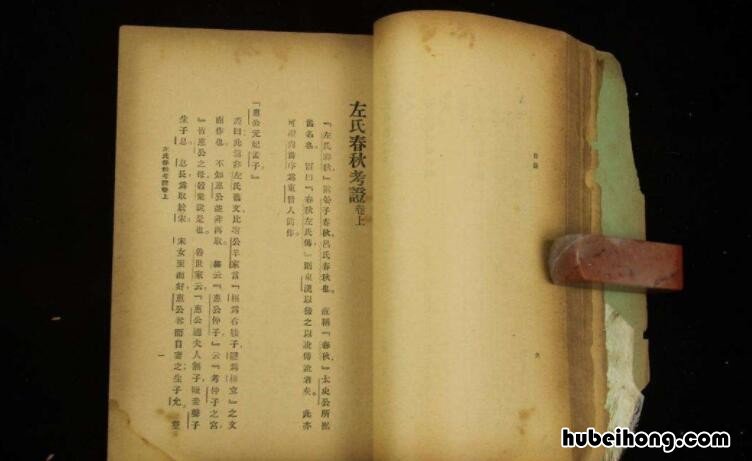 目錄
六
左氏春秋考證 卷上
『左氏春秋』猶晏子春秋呂氏春秋也。直稱『春秋』太史公所據
舊名也。冒曰『春秋左氏傳』則東漢以後之以訛傳訛者矣。此亦
可證 序爲東晉人 作
『惠公元妃孟子』
證曰此篇非左氏舊文比附公羊家言『桓爲右媵子隱爲桓立』之文
而作也。不知惠公並非再取。經云『惠公仲子』云『考仲子之宮
』皆惠公之母穀梁說是也。魯世家云『惠公適夫人無子賤妾聲子
生子息。息長爲取於宋宋女至而好惠公奪而自妻之生子允。登
左氏春秋考證卷上
一
hubeihong.com